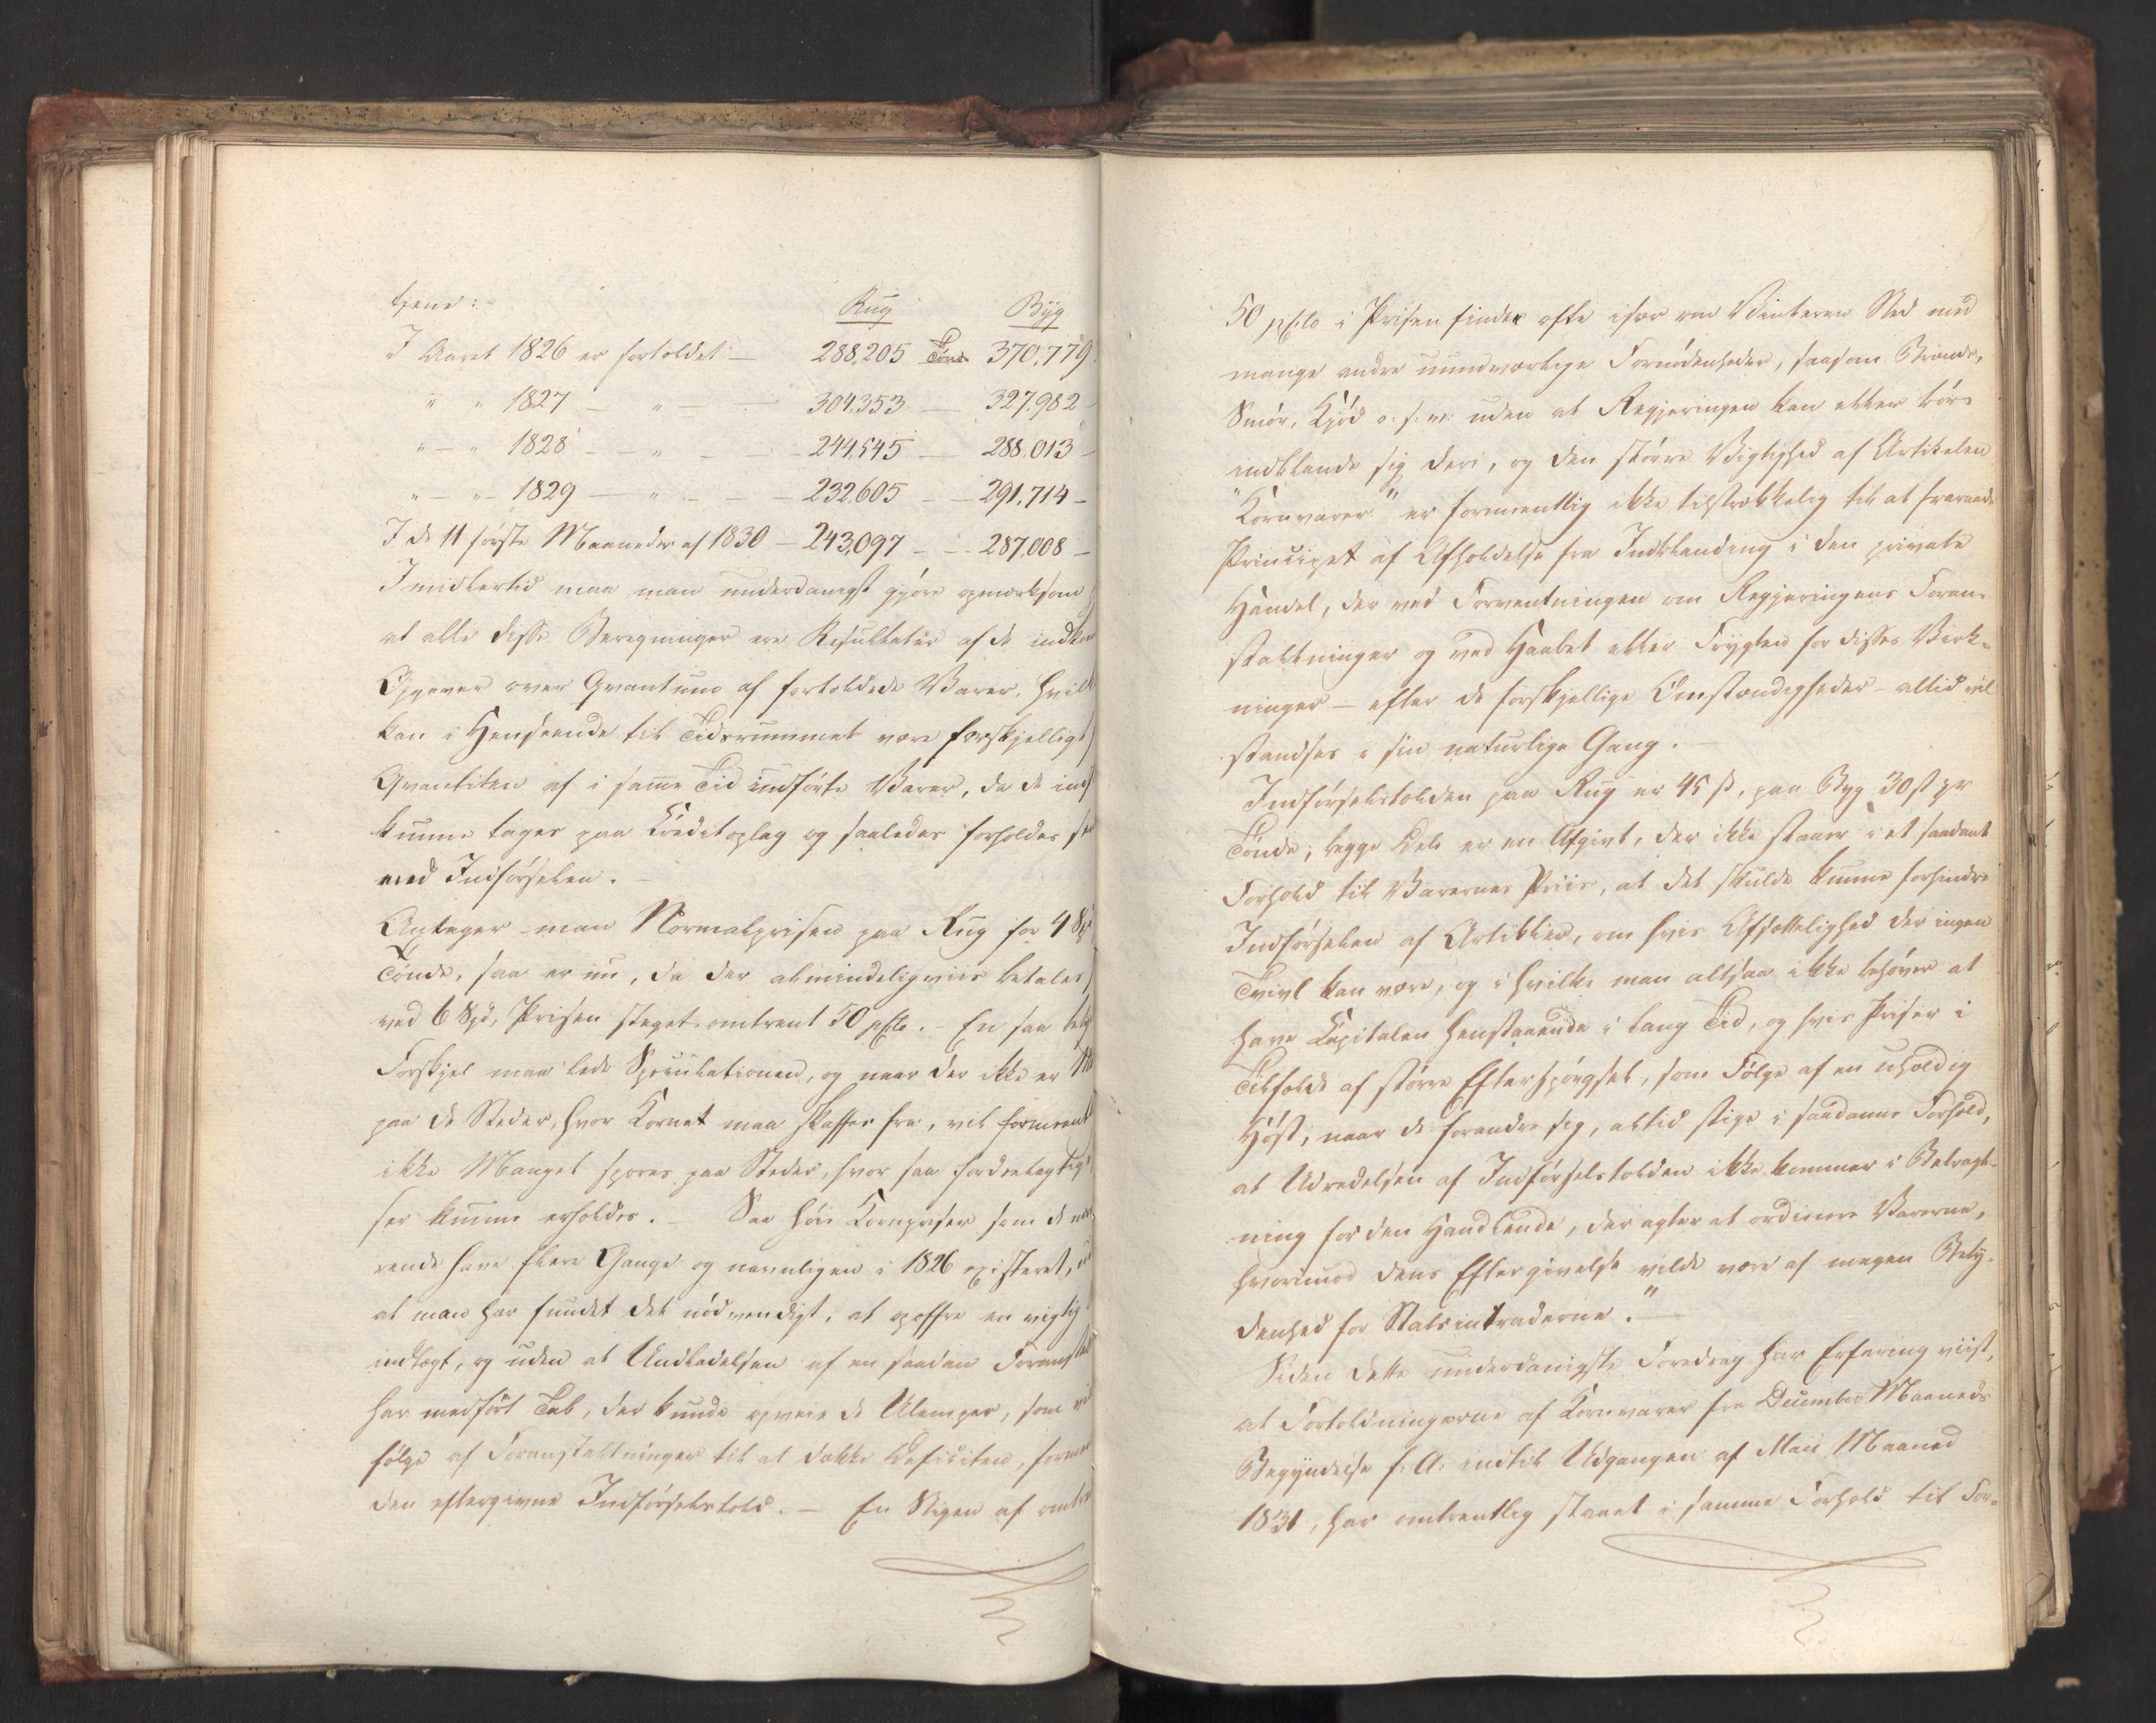 tjene:
Rug Byg
I Aaret 1826 er fortoldet — 288,205 Tønd 370,779
" " 1827 — " — 304,353 — 327,982 -
" — " 1828 — — " — — 244,545 — 288,013 -
" — " — 1829 — " — — — 232,605 — — 291,714 —
I de 11 første Maaneder af 1830 — 243,097 — — 287,008 —
Imidlertid maa man underdanigst gjøre opmærksom
at alle disse Beregninger ere Resultater af de indkom
Opgaver over Qvantum af fortoldede Varer, hvilk
kan i Henseende til Tidsrummet være forskjelligt
Qvantiten af i samme Tid indførte Varer, da de ind
kunne tages paa Creditoplag og saaledes forholdes
med Indførselen. —
Antager man Normalprisen paa Rug for 4 Sp
Tønde, saa er nu, da der almindeligviis betales
ved 6 Spd, Prisen steget omtrent 50 pCto. — En saa bety
Forskjel maa lede Speculationen, og naar der ikke er
paa de Steder, hvor Kornet maa skaffes fra, vil forment
ikke Mangel spores paa Steder, hvor saa fordeelagtige
ser kunne erholdes. — Saa høie Kornpriser som de nær
rende have flere Gange og navnligen i 1826 existeret, u
at man har fundet det nødvendigt, at opoffre en vigtig
indtægt, og uden at Undladelsen af en saadan Foranstal
har medført Tab, der kunde opveie de Ulemper, som vil
følge af Foranstaltninger til at dække Deficiten, formed
den eftergivne Indførselstold. — En Stigen af omtre
50 pCto i Prisen finder ofte især om Vinteren Sted med
mange andre uundværlige Fornødenheder, saasom Brænde,
Smør, Kjød o. s. v. uden at Regjeringen kan eller bør
indblande sig deri, og den større Vigtighed af Artikelen
"Kornvarer" er formeentlig ikke tilstrækkelig til at fravende
Principet af Afholdelse fra Indblanding i den private
Handel, der ved Forventningen om Regjeringens Foran-
staltninger og ved Haabet eller Frygten for disses Virk-
ninger — efter de forskjellige Omstændigheder — altid vil
standses i sin naturlige Gang. —
Indførselstolden paa Rug er 45 ß, paa Byg 30 ß pr
Tønde; begge Dele er en Afgivt, der ikke staaer i et saadant
Forhold til Varernes Priis, at det skulde kunne forhindre
Indførselen af Artikler, om hvis Afsættelighed der ingen
Tvivl kan være, og i hvilke man altsaa ikke behøver at
have Capitalen henstaaende i lang Tid, og hvis Priser i
Tilfælde af større Efterspørgsel, som Følge af en uheldig
Høst, naar de forandre sig, altid stige i saadanne Forhold,
at Udredelsen af Indførselstolden ikke kommer i Betragt-
ning for den Handlende, der agter at ordinere Varerne,
hvorimod dens Eftergivelse vilde være af megen Bety-
denhed for Statsintraderne." —
Siden dette underdanigste Foredrag har Erfaring viist,
at Fortoldningerne af Kornvarer fra December Maaneds
Begyndelse f. A. indtil Udgangen af Mai Maaned
1831, har omtrentlig staaet i samme Forhold til For-